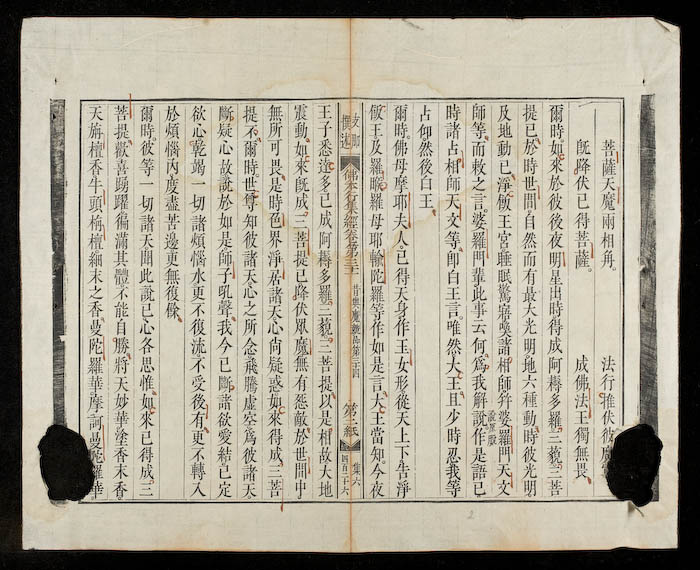 菩薩天魔兩相角 法行推伏彼魔
旣降伏已得菩薩 成佛法王獨無畏
爾時如來於彼後夜明星出時得成阿耨多羅三藐三菩
提已於時世間自然而有最大光明地六種動時彼光明
及地動已淨飯王宮睡眠驚寤喚諸相師并婆羅門天文
師等而敕之言婆羅門輩此事云何爲我解說作是語已
時諸占相師天文等卽白王言唯然大王且少時忍我等
占仰然後白王
爾時佛母摩耶夫人已得天身作玉女形從天上下告淨
飯王及羅睺羅母耶輸陀羅等作如是言大王當知今夜
佛本行集經卷第三十 昔與魔競品第三十四 第二紙 集六 四百二十六
王子悉達多已成阿耨多羅三藐三菩提以是相故大地
震動如來旣成三菩提已降伏眾魔無有惡敵於世間中
無所可畏是時色界淨居諸天心尚疑惑如來得成三菩
提不爾時世尊知彼諸天心之所念飛騰虛空爲彼諸天
斷疑心故說於如是師子吼聲我今已斷諸欲愛結已定
欲心乾竭一切諸煩惱水更不復流不受後有更不轉入
於煩惱內度盡苦邊更無復餘
爾時彼等一切諸天聞此說已心各思惟如來已得成三
菩提歡喜踴躍徧滿其體不能自勝將天妙華塗香末香
天旃檀香牛頭栴檀細末之香曼陀羅華摩訶曼陀羅華